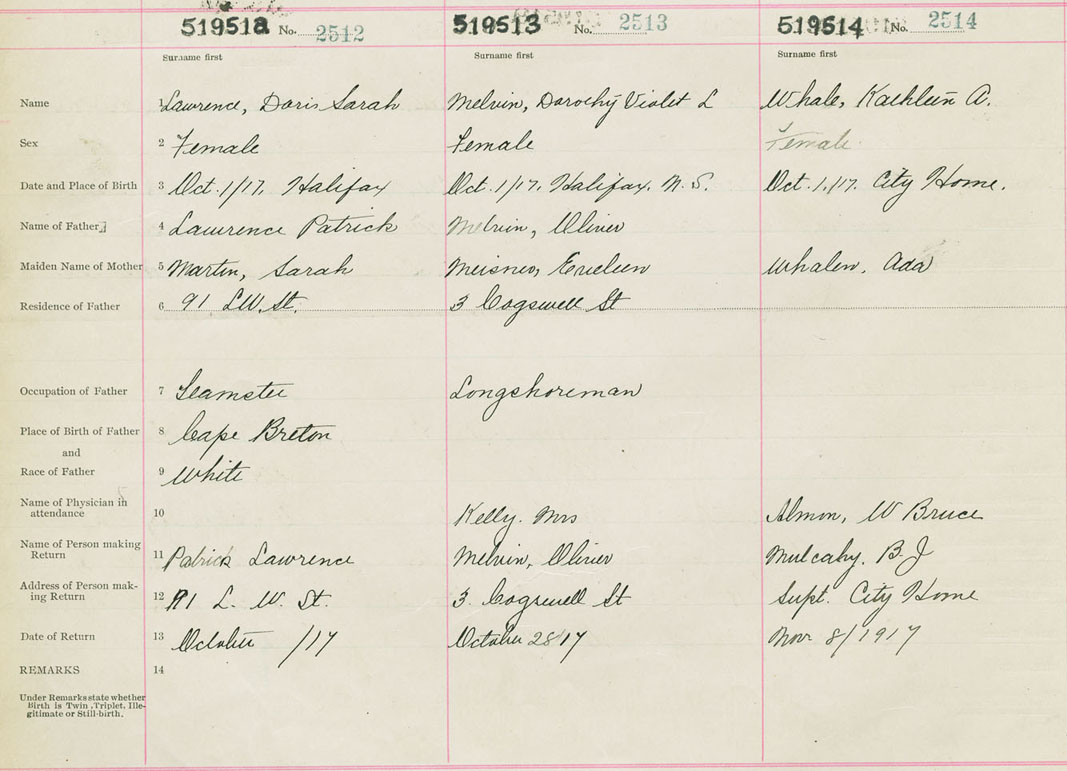 519512 No. 2512 519513 No. 2513 519514 No. 2514
Surname first Surname first Surname first
Name 1 Lawrence, Doris Sarah Melvin, Dorothy Violet L Whale, Kathleen A.
Sex 2 Female Female Female
Date and Place of Birth 3 Oct. 1/17. Halifax Oct. 1/17. Halifax. N.S. Oct. 1./17. City Home.
Name of Father 4 Lawrence Patrick Melvin, Oliver
Maiden Name of Mother 5 Martin, Sarah Whalen, Ada
Residence of Father 6 91 L.W. St. 3 Cogswell St
Occupation of Father 7 Teamster Longshoreman
Place of Birth of Father 8 Cape Breton
and
Race of Father 9 White
Name of Physician in
attendance 10 Kelly. Mrs Almon, W Bruce
Name of Person making
Return 11 Patrick Lawrence Melvin, Oliver Mulcahy. B. J
Address of Person mak-
ing Return 12 91 L. W. St. 3. Cogswell St Supt. City Home
Date of Return 13 October /17 October 28 17 Nov 8/1917
REMARKS 14
Under Remarks state whether
Birth is Twin, Triplet, Ille-
gitimate or Still-birth.